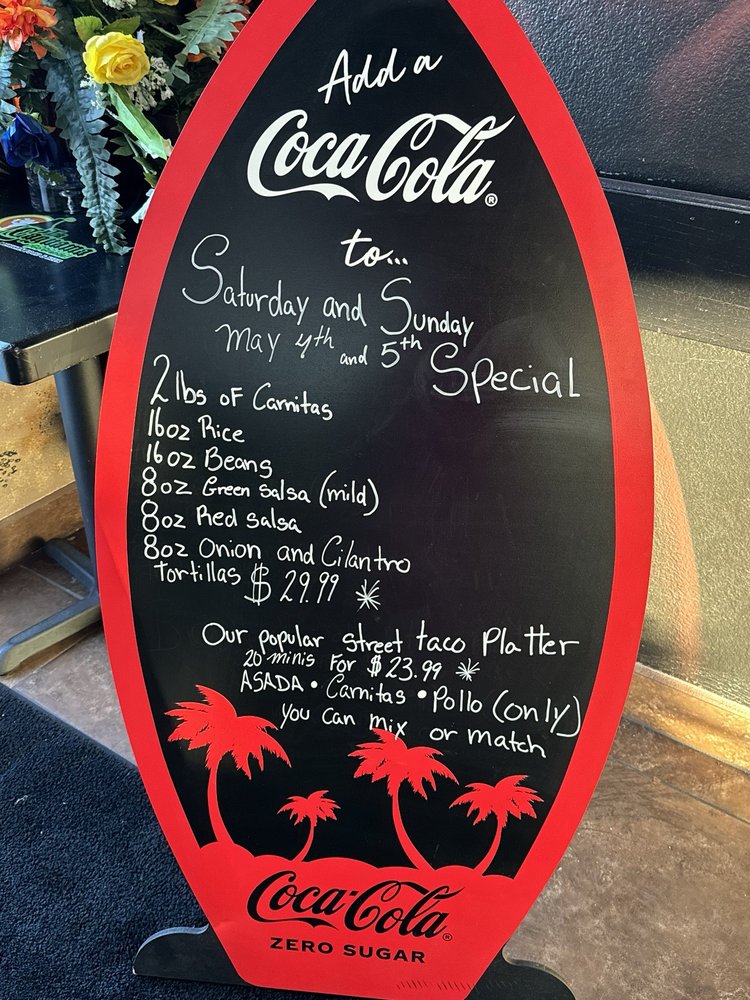 Add a
Coca Cola®
to...
Saturday and Sunday
May 4th and 5th Special
2 lbs of Carnitas
16oz Rice
16oz Beans
8oz Green Salsa (mild)
8oz Red Salsa
8oz Onion and Cilantro
tortillas $29.99 *
Our popular street taco Platter
20 minis for $23.99 *
ASADA • Carnitas • Pollo (only)
you can mix or match
Coca-Cola®
ZERO SUGAR